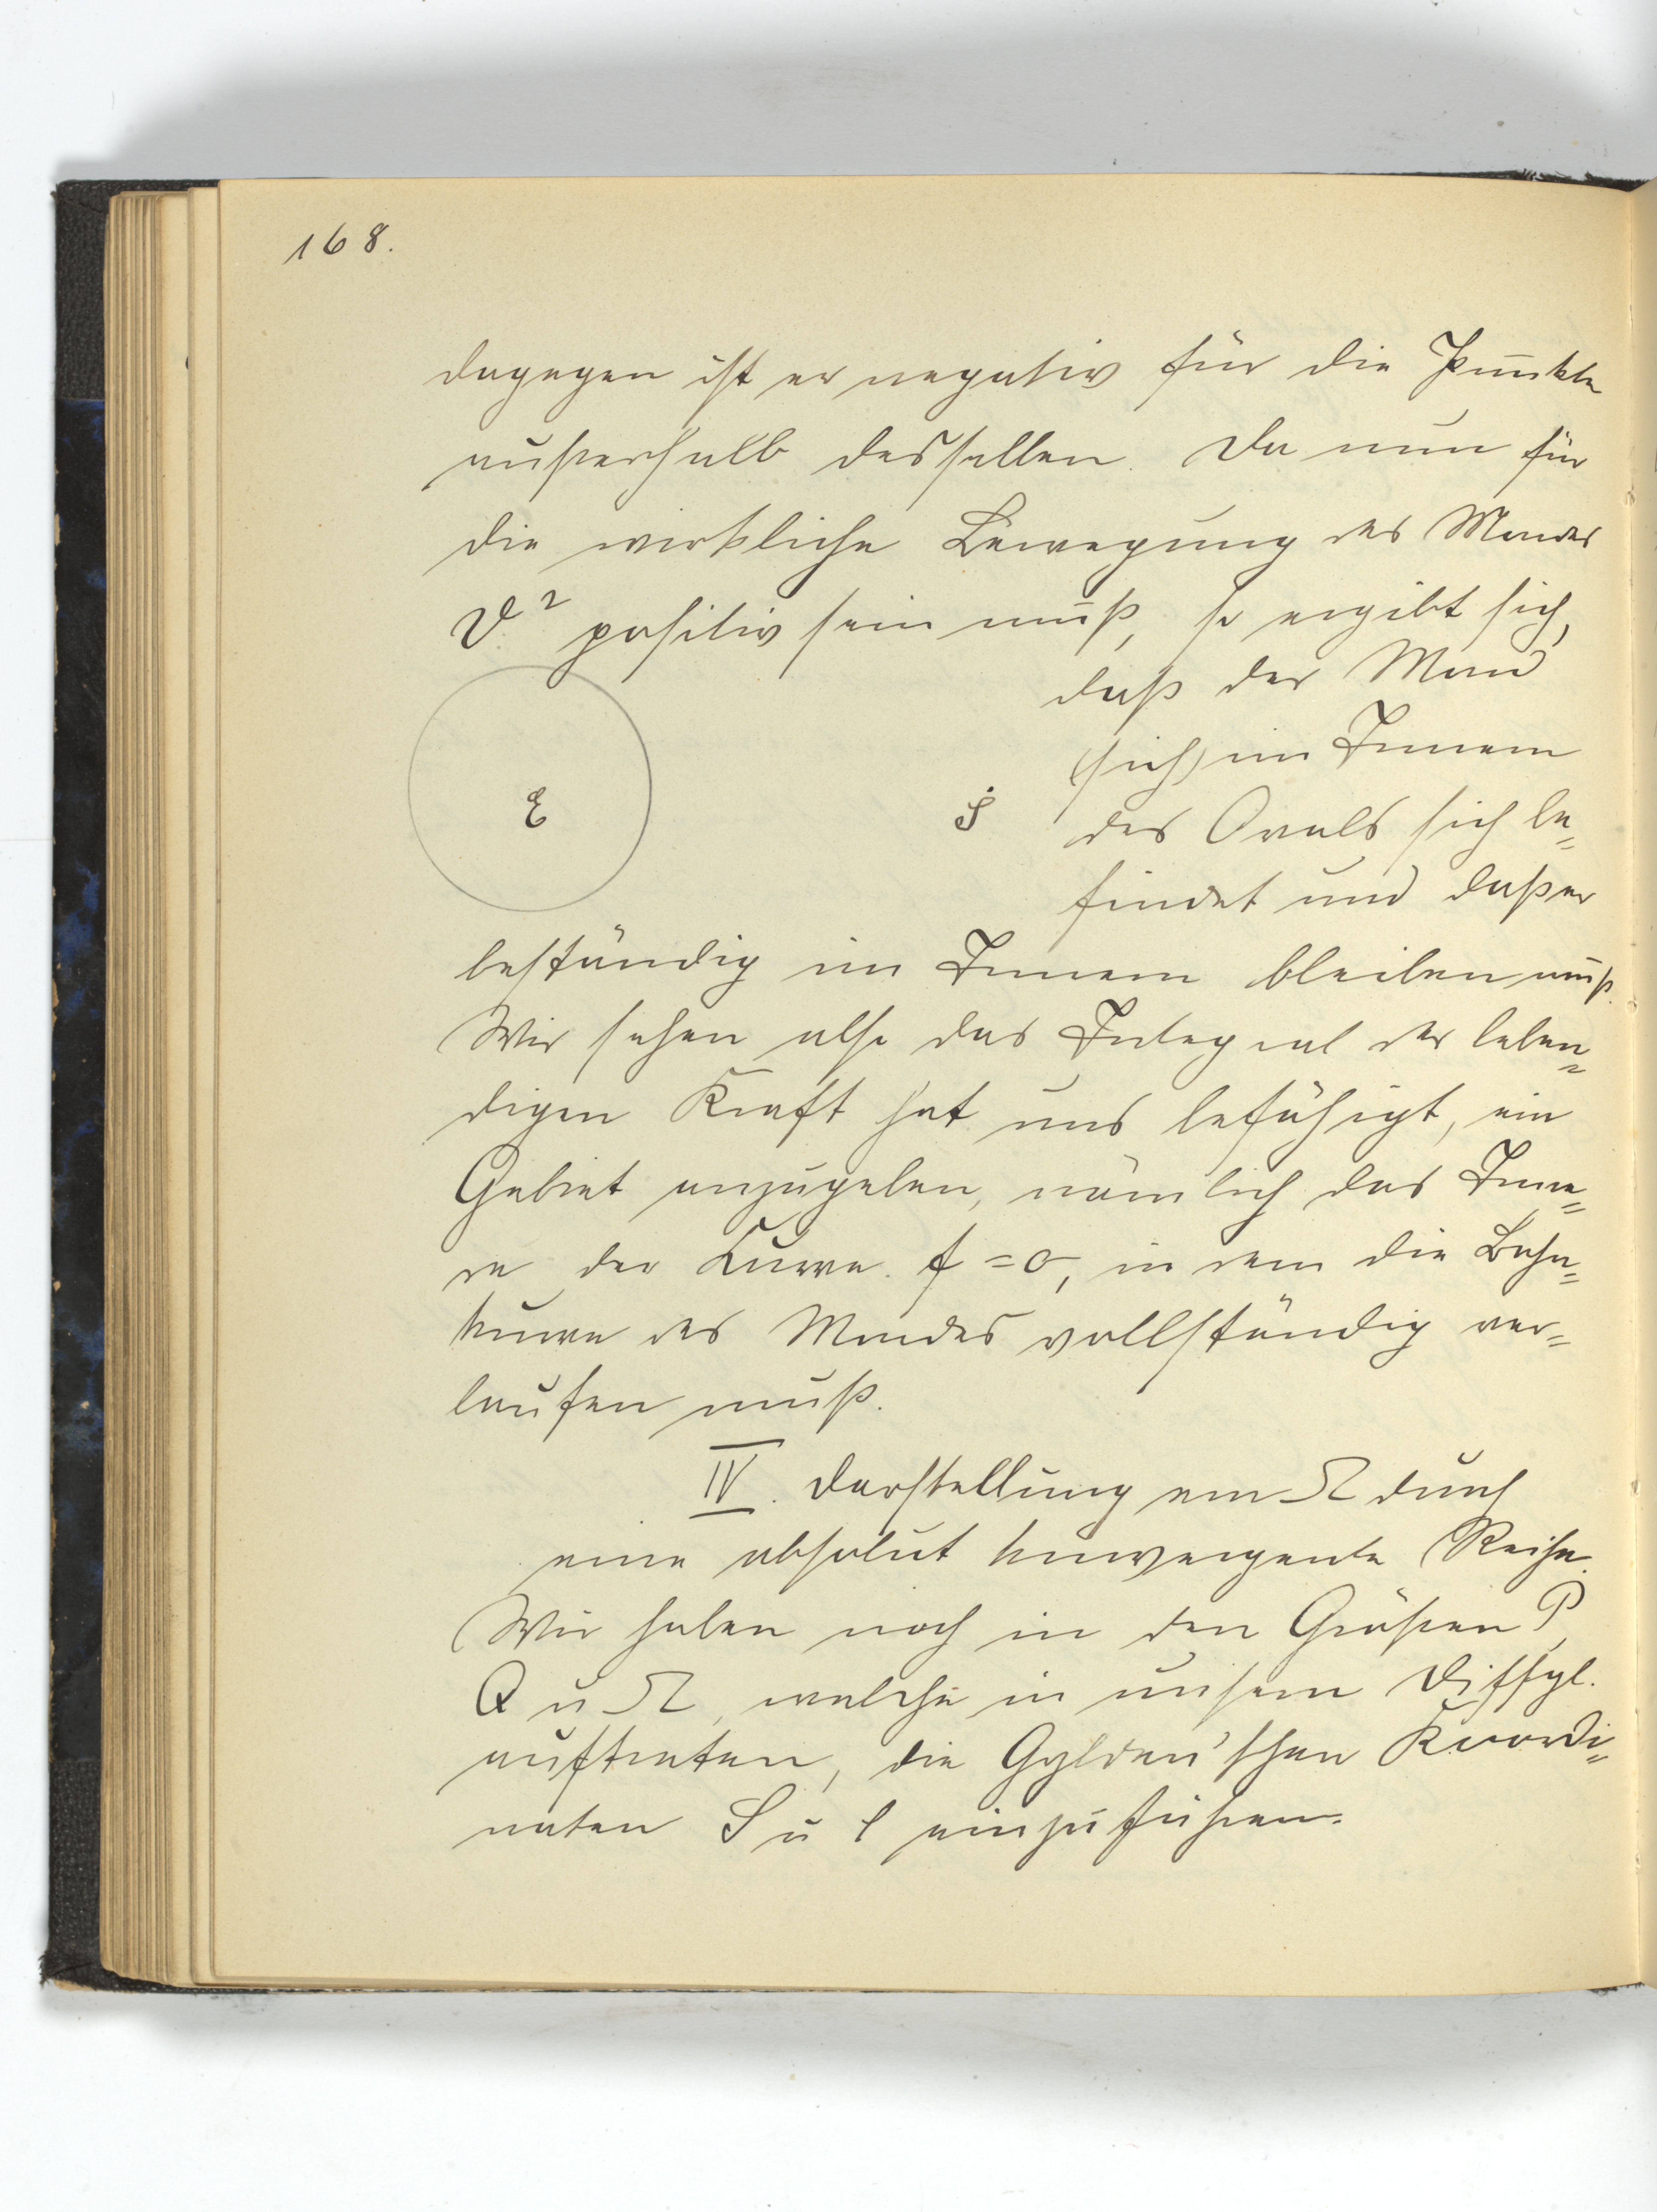 168.
dagegen ist er negativ für die Punkte
außerhalb desselben. Da nun für
die wirkliche Bewegung des Mondes
V² positiv sein muß, so ergibt sich,
daß der Mond
(sich) im Innern
E
S
des Ovals sich be=
findet und daß er
beständig im Innern bleiben muß.
Wir sehen also das Integral der leben=
digen Kraft hat uns befähigt, ein
Gebiet anzugeben, nämlich das Inne=
re der Kurve f = 0, in dem die Bahn=
kurve des Mondes vollständig ver=
laufen muß.
IV. Darstellung von Ω durch
eine absolut konvergente Reihe.
Wir haben noch in den Größen P,
Q u Ω, welche in unsern Diffgl.
auftreten, die Gyldén'schen Koordi=
naten S u l einzuführen.